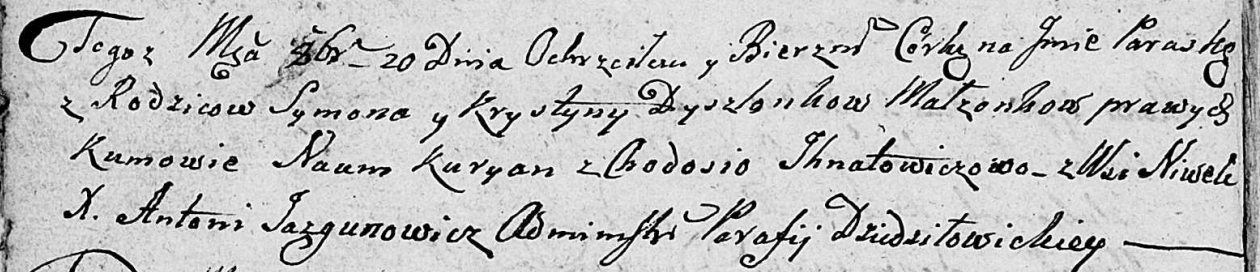 Tegoż Msca 8br 20 Dnia Ochrzciłem y Bierzm Córkę na Jmie Paraskę
z Rodzicow Symona y Krystyny Dyszlonkow Małżonkow prawych
Kumowie Naum Kuryan z Chodosio Ihnatowiczowo - z Wsi Niwek
X. Antoni Jazgunowicz Administr Parafij Dziedziłowickiey